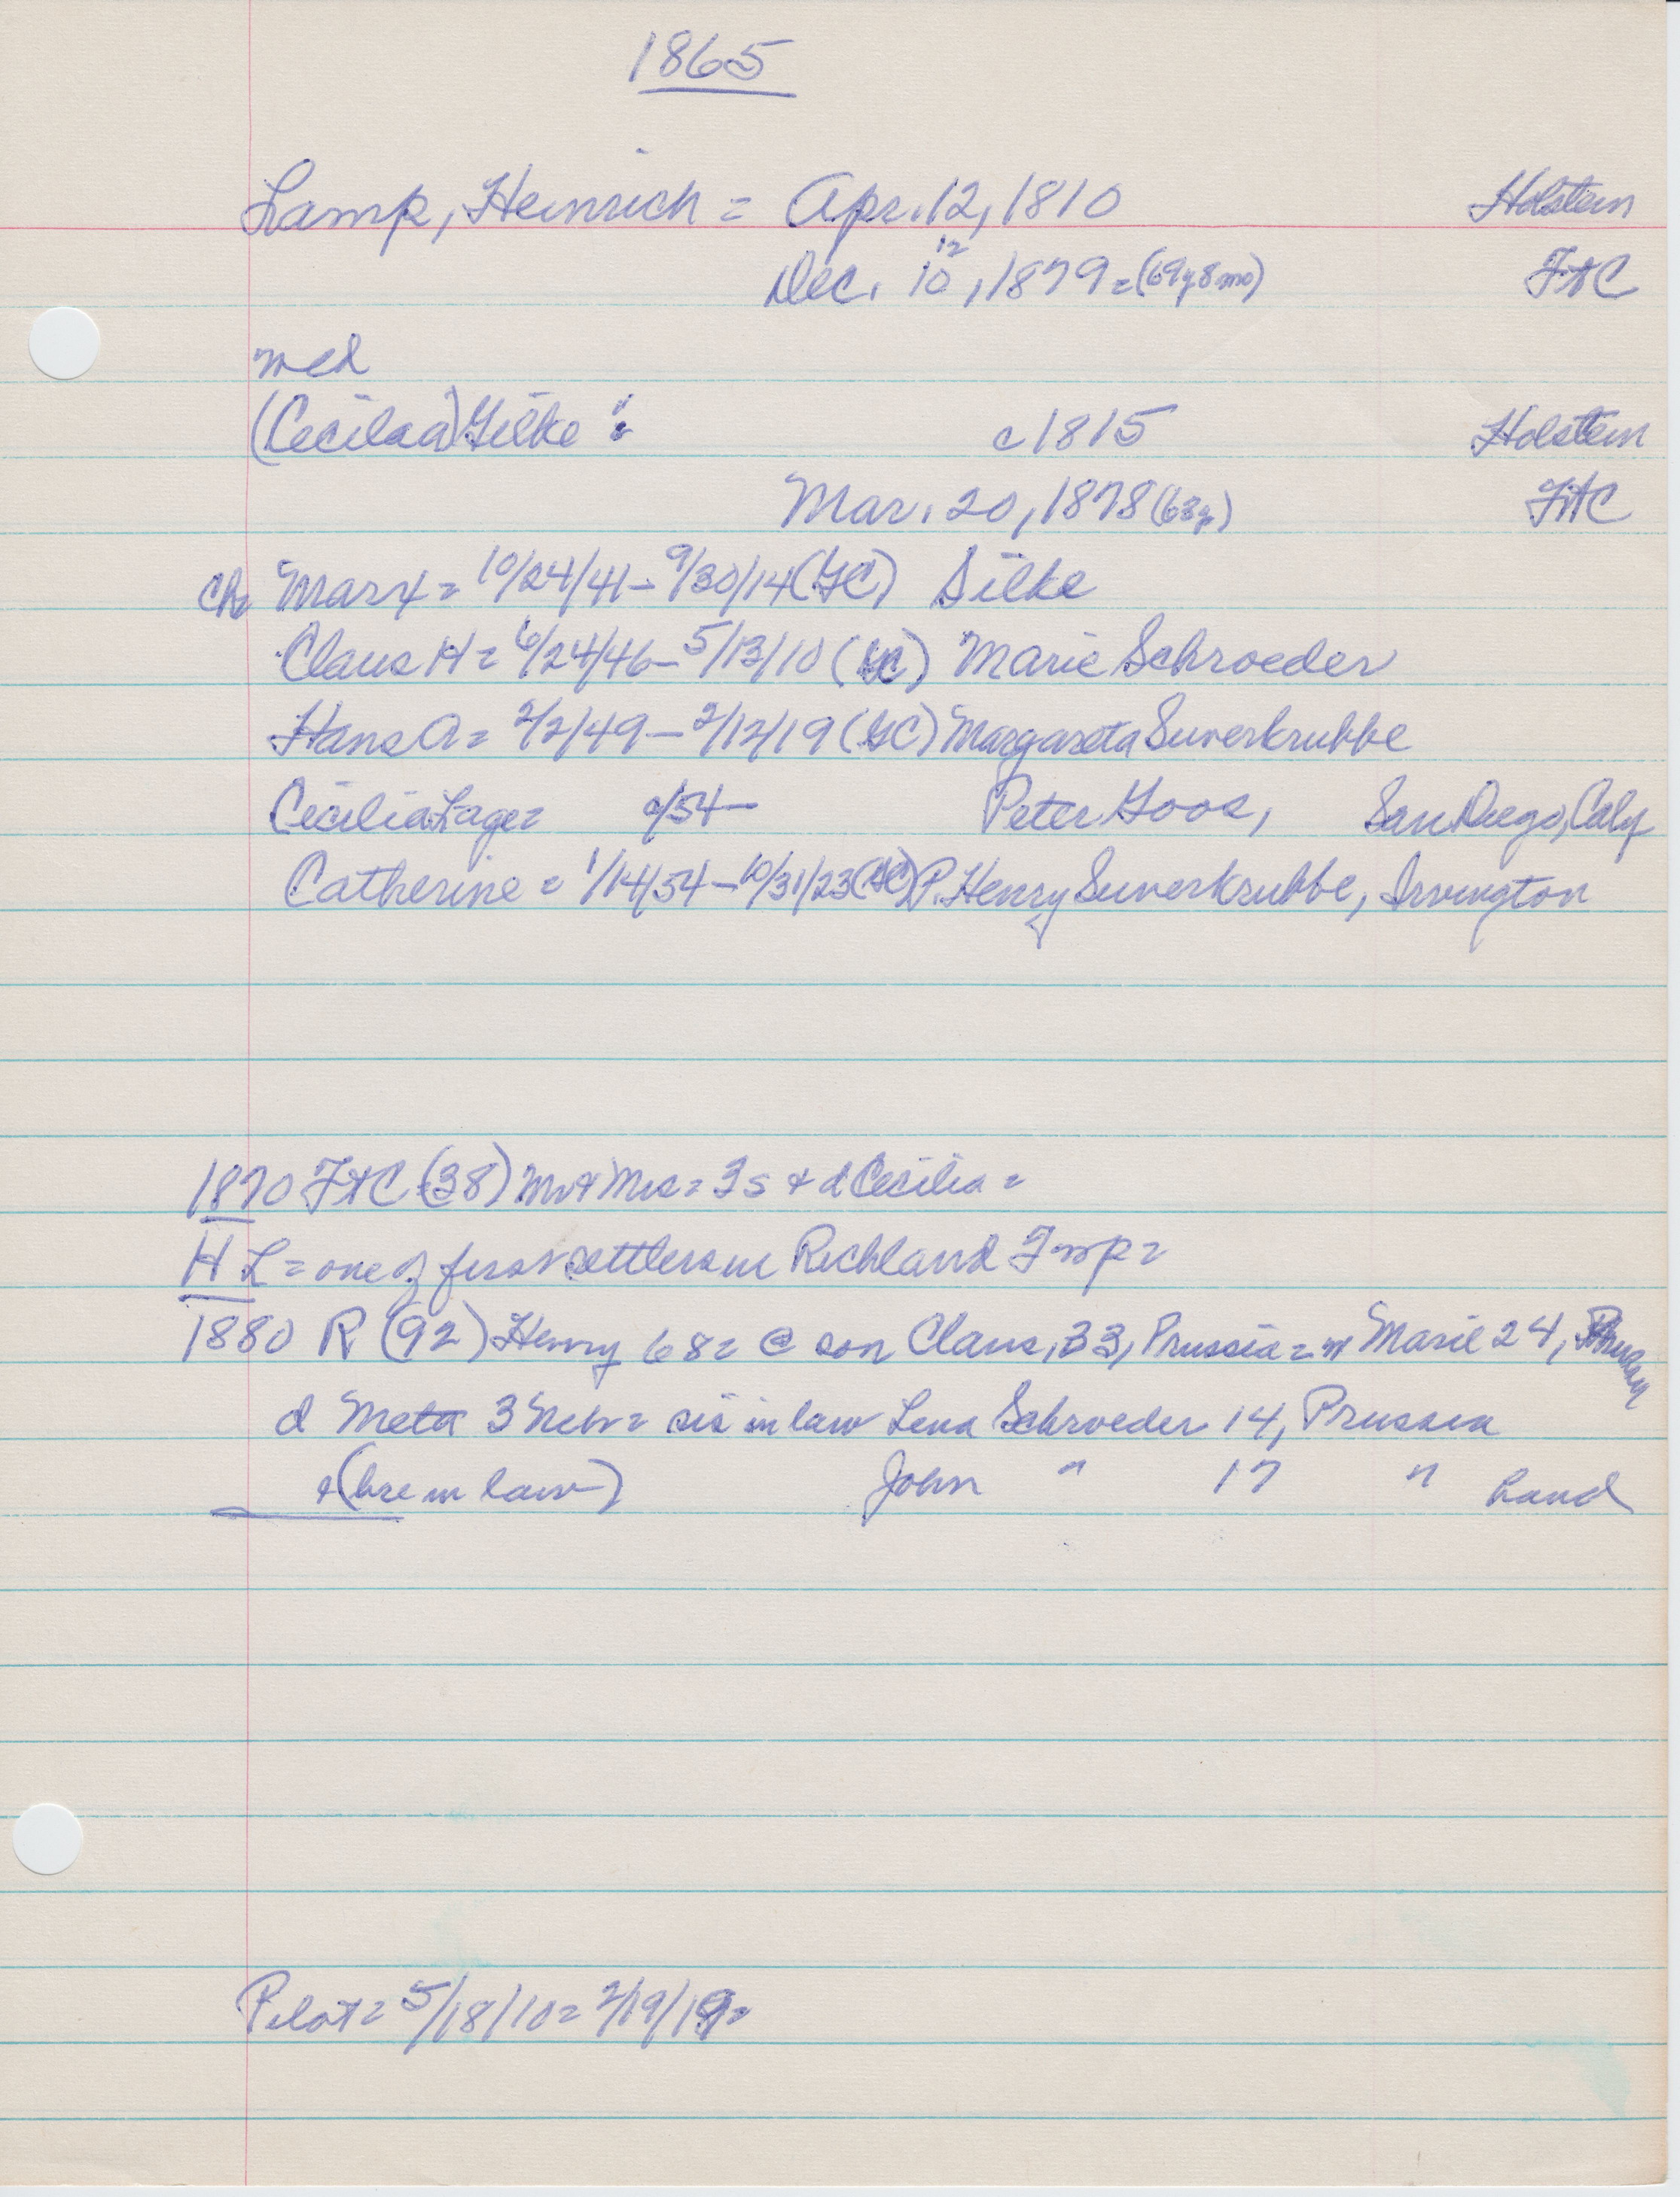 1865
Lamp, Heinrich = Apr. 12, 1810 Holstein
12
Dec. 10, 1879 = (69y 8mo) Ft C
med
(Cecilaa) Silke : c 1815 Holstein
Mar. 20, 1878 (63y) Ft C
ch Marx = 10/24/41 - 9/30/14 (GC) Silke
Claus H = 6/24/46 - 5/13/10 (GC) Marie Schroeder
Hans A = 2/2/49 - 2/12/19 (GC) Margareta Suverkrubbe
Cecilia Lage = c/54 - Peter Goos, San Diego, Calif
Catherine = 1/14/54 - 10/31/23 (GC) P. Henry Suverkrubbe, Irvington
1870 Ft C (38) Mr + Mrs = 3 s + d Cecilia =
H L = one of first settlers in Richland Twp =
1880 R (92) Henry 68 = @ son Claus, 33, Prussia = m Marie 24,
d Meta 3 Neb = sis in law Lena Schroeder 14, Prussia
+ (bro in law) John " 17 " hand
Pilot = 5/18/10 = 2/19/19 =